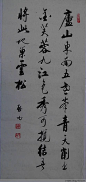 廬山東南五老峯青天削出
金芙蓉九江秀色可攬結吾
將此地巢雲松